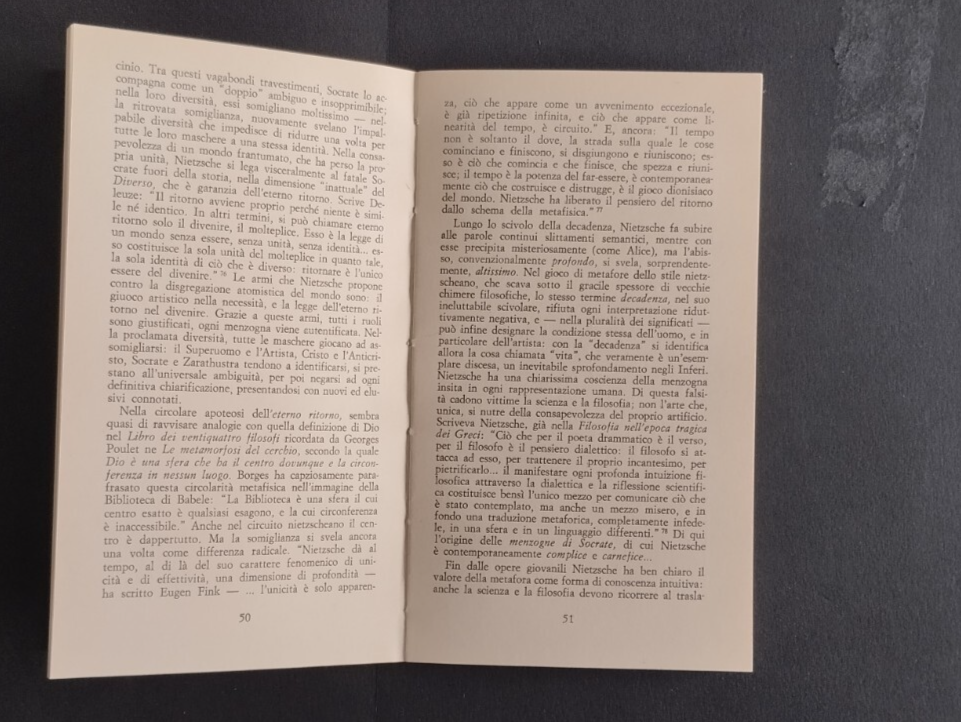 cinio. Tra questi vagabondi travestimenti, Socrate lo ac-
compagna come un "doppio" ambiguo e insopprimibile;
nella loro diversità, essi somigliano moltissimo — nel-
la ritrovata somiglianza, nuovamente svelano l'impal-
pabile diversità che impedisce di ridurre una volta per
tutte le loro maschere a una stessa identità. Nella consa-
pevolezza di un mondo frantumato, che ha perso la pro-
pria unità, Nietzsche si lega visceralmente al fatale So-
crate fuori della storia, nella dimensione "inattuale" del
Diverso, che è garanzia dell'eterno ritorno. Scrive De-
leuze: "Il ritorno avviene proprio perché niente è simi-
le né identico. In altri termini, si può chiamare eterno
ritorno solo il divenire, il molteplice. Esso è la legge di
un mondo senza essere, senza unità, senza identità... es-
so costituisce la sola unità del molteplice in quanto tale,
la sola identità di ciò che è diverso: ritornare è l'unico
essere del divenire." 76 Le armi che Nietzsche propone
contro la disgregazione atomistica del mondo sono: il
giuoco artistico nella necessità, e la legge dell'eterno ri-
torno nel divenire. Grazie a queste armi, tutti i ruoli
sono giustificati, ogni menzogna viene autentificata. Nel-
la proclamata diversità, tutte le maschere giocano ad as-
somigliarsi: il Superuomo e l'Artista, Cristo e l'Anticri-
sto, Socrate e Zarathustra tendono a identificarsi, si pre-
stano all'universale ambiguità, per poi negarsi ad ogni
definitiva chiarificazione, presentandosi con nuovi ed elu-
sivi connotati.
Nella circolare apoteosi dell'eterno ritorno, sembra
quasi di ravvisare analogie con quella definizione di Dio
nel Libro dei ventiquattro filosofi ricordata da Georges
Poulet ne Le metamorfosi del cerchio, secondo la quale
Dio è una sfera che ha il centro dovunque e la circon-
ferenza in nessun luogo. Borges ha capziosamente para-
frasato questa circolarità metafisica nell'immagine della
Biblioteca di Babele: "La Biblioteca è una sfera il cui
centro esatto è qualsiasi esagono, e la cui circonferenza
è inaccessibile." Anche nel circuito nietzscheano il cen-
tro è dappertutto. Ma la somiglianza si svela ancora
una volta come differenza radicale. "Nietzsche dà al
tempo, al di là del suo carattere fenomenico di uni-
cità e di effettività, una dimensione di profondità —
ha scritto Eugen Fink — ... l'unicità è solo apparen-
50
za, ciò che appare come un avvenimento eccezionale,
è già ripetizione infinita, e ciò che appare come li-
nearità del tempo, è circuito." E, ancora: "Il tempo
non è soltanto il dove, la strada sulla quale le cose
cominciano e finiscono, si disgiungono e riuniscono; es-
so è ciò che comincia e che finisce, che spezza e riuni-
sce; il tempo è la potenza del far-essere, è contemporanea-
mente ciò che costruisce e distrugge, è il gioco dionisiaco
del mondo. Nietzsche ha liberato il pensiero del ritorno
dallo schema della metafisica." 77
Lungo lo scivolo della decadenza, Nietzsche fa subire
alle parole continui slittamenti semantici, mentre con
esse precipita misteriosamente (come Alice), ma l'abis-
so, convenzionalmente profondo, si svela, sorprendente-
mente, altissimo. Nel gioco di metafore dello stile nietz-
scheano, che scava sotto il gracile spessore di vecchie
chimere filosofiche, lo stesso termine decadenza, nel suo
ineluttabile scivolare, rifiuta ogni interpretazione ridut-
tivamente negativa, e — nella pluralità dei significati —
può infine designare la condizione stessa dell'uomo, e in
particolare dell'artista: con la "decadenza" si identifica
allora la cosa chiamata "vita", che veramente è un'esem-
plare discesa, un inevitabile sprofondamento negli Inferi.
Nietzsche ha una chiarissima coscienza della menzogna
insita in ogni rappresentazione umana. Di questa falsi-
tà cadono vittime la scienza e la filosofia; non l'arte che,
unica, si nutre della consapevolezza del proprio artificio.
Scriveva Nietzsche, già nella Filosofia nell'epoca tragica
dei Greci: "Ciò che per il poeta drammatico è il verso,
per il filosofo è il pensiero dialettico: il filosofo si at-
tacca ad esso, per trattenere il proprio incantesimo, per
pietrificarlo... il manifestare ogni profonda intuizione fi-
losofica attraverso la dialettica e la riflessione scientifi-
ca costituisce bensì l'unico mezzo per comunicare ciò che
è stato contemplato, ma anche un mezzo misero, e in
fondo una traduzione metaforica, completamente infede-
le, in una sfera e in un linguaggio differenti." 78 Di qui
l'origine delle menzogne di Socrate, di cui Nietzsche
è contemporaneamente complice e carnefice...
Fin dalle opere giovanili Nietzsche ha ben chiaro il
valore della metafora come forma di conoscenza intuitiva:
anche la scienza e la filosofia devono ricorrere al trasla-
51